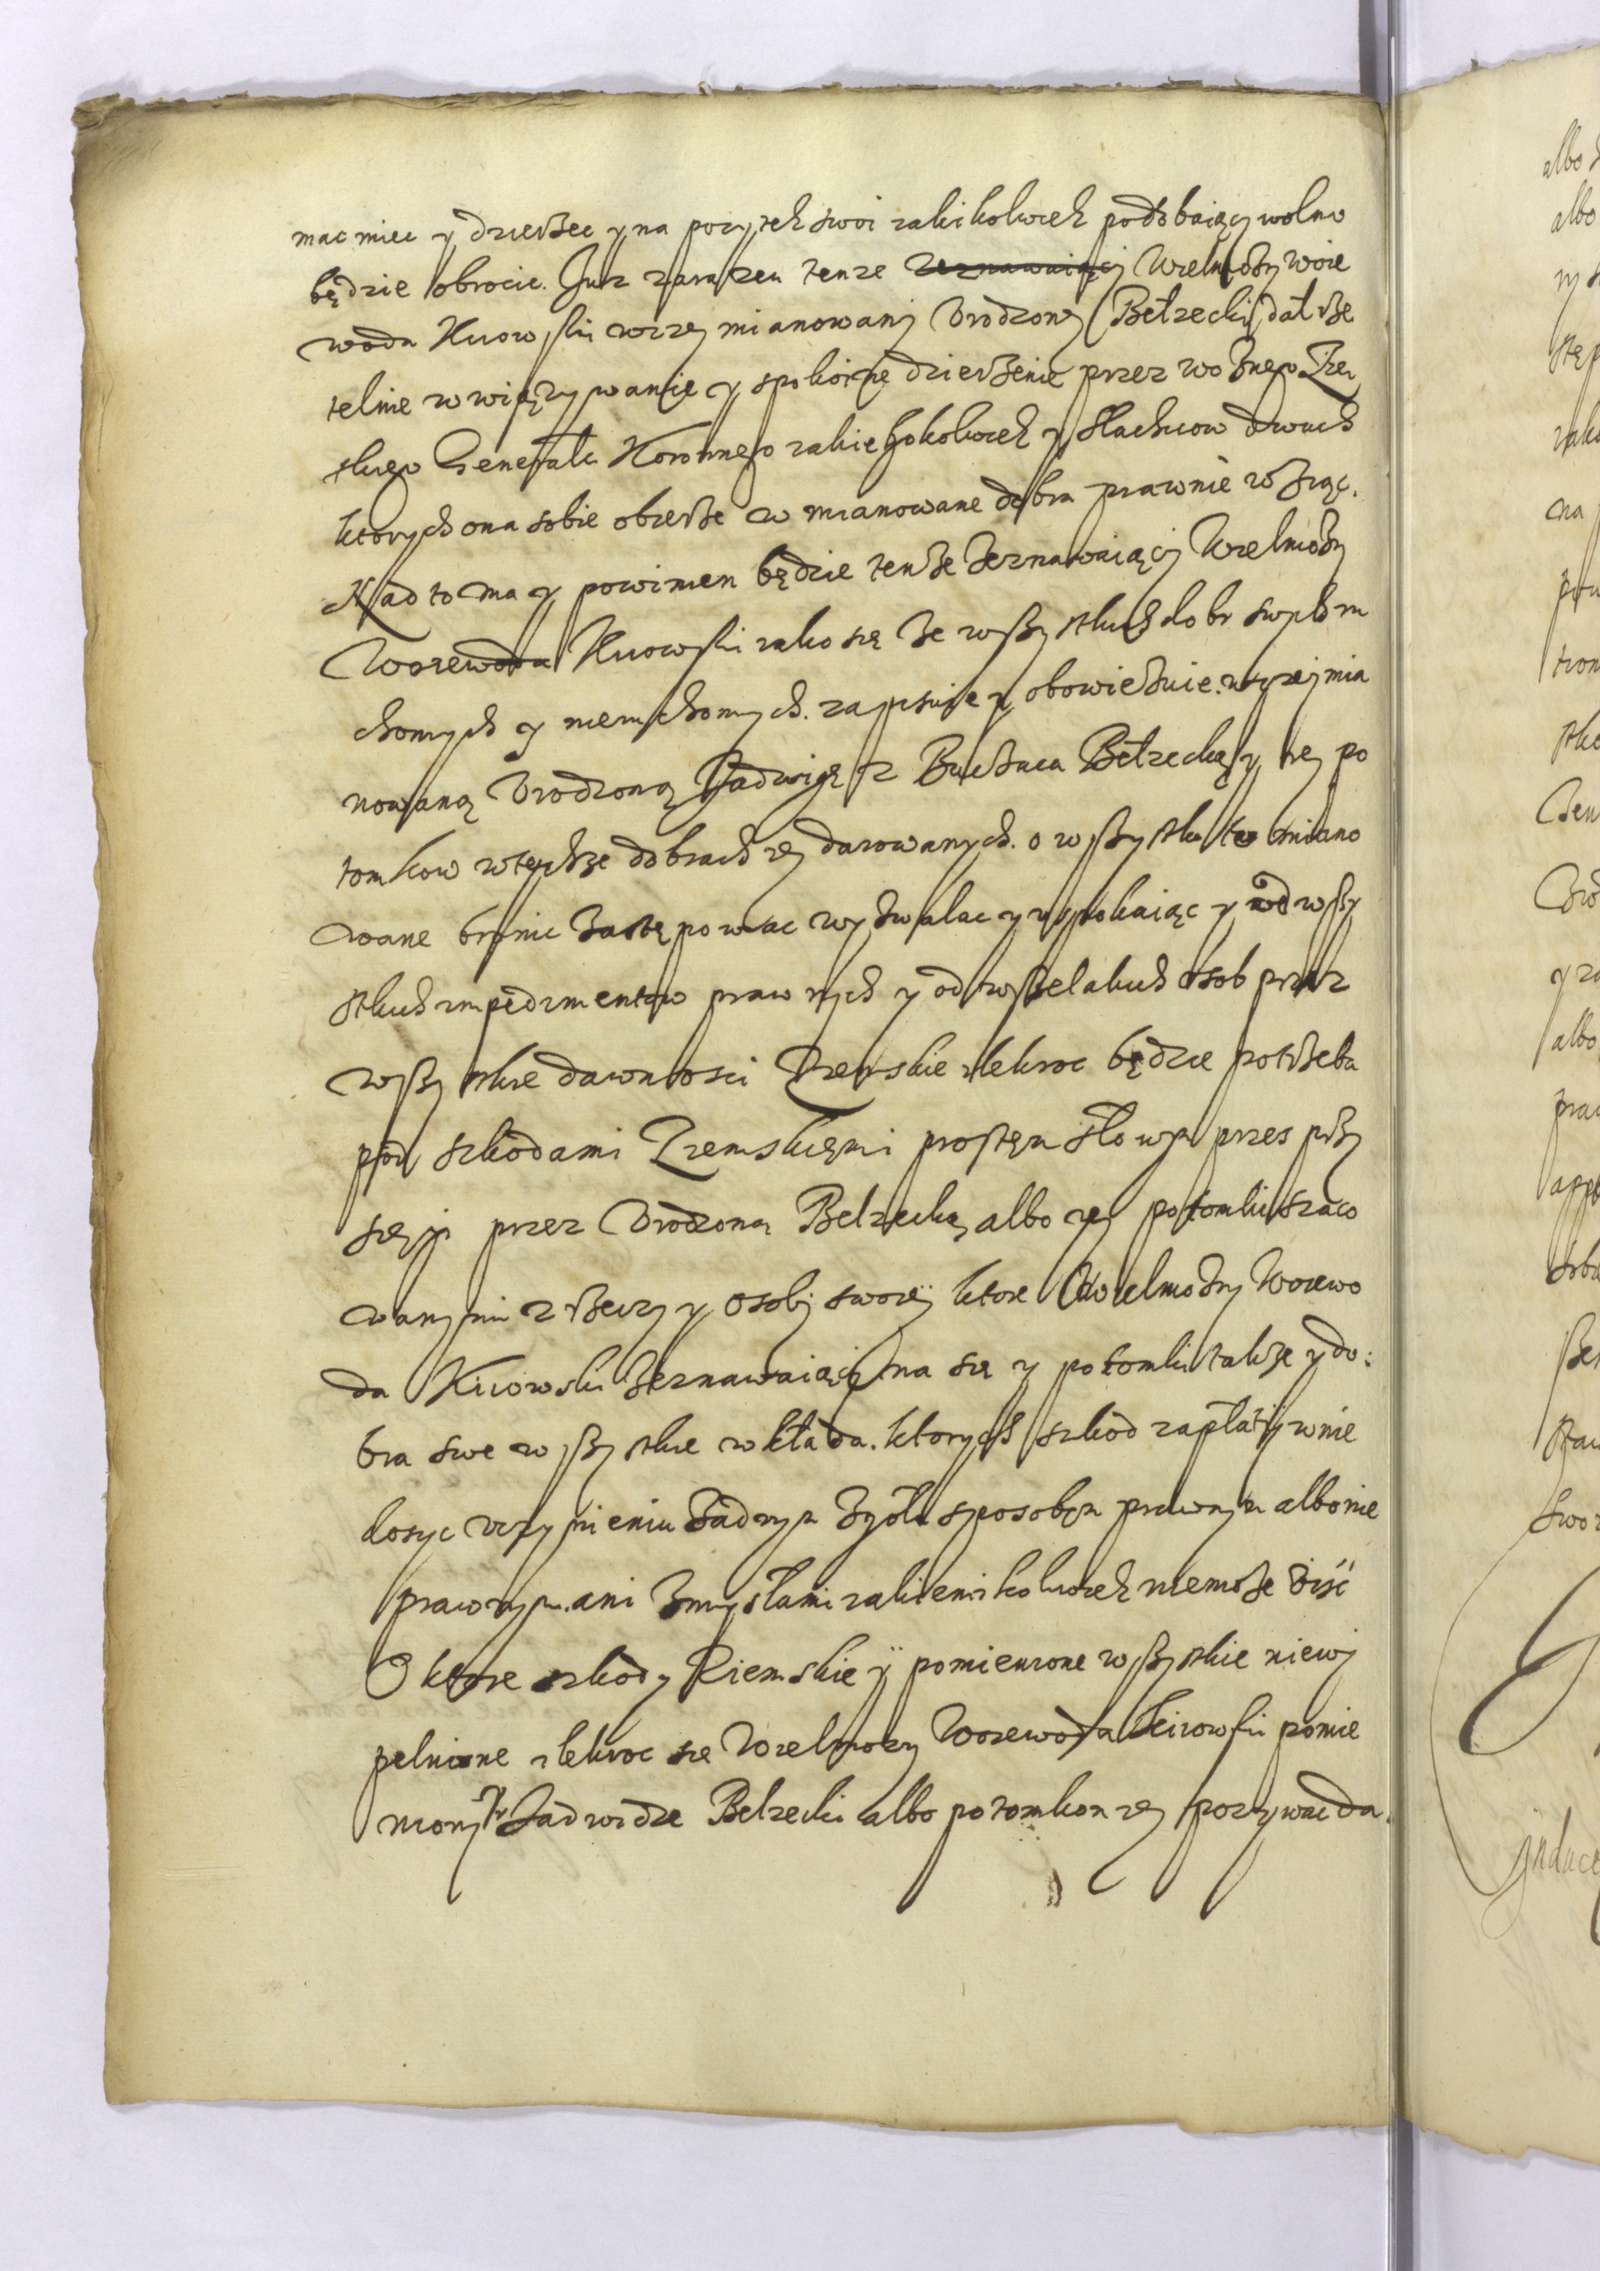 mac miec y dzierżec y na pożytek swoi iakikolwiek podobaiący wolno
będzie obrocic. Iuz zarazem tenze zeznawaiący Wielmożny Woie
woda Kiiowski wzzey mianowany Vrodzoney Bełzeckiy dał rze
telnie wwięzywanie y spokoine dzierżenie przez woznego Zięm
skiego Generała Koronnego iakiegokolwiek y slachcicow dwuch
ktorych ona sobie obierze w mianowane dobra prawnie wziąc.
Nad to ma y powinien będzie tenże zeznawaiący Wielmożny
Woiewoda Kiiowski iako się ze wszystkich dobr swych ru
chomych y nieruchomych. zapisuie y obowięzuie. wyzey mia
nowaną Vrodzoną Jadwigę z Buczacza Bełzecką y iey po
tomkow wtychze dobrach iey darowanych. o wszystko to miano
wane bronic zastępowac wyzwalac y uspokaiąc y od wszy
stkich impedimentow prawnych y od wszelakich osob przez
wszystkie dawnosci Ziemskie ilekroc będzie potrzeba
pod szkodami Ziemskiemi prostęm słowęm przes przy
sięgi przez Vrodzoną Belzecką albo iey potomki szaco
wanymi z rzeczy y osoby swoiey ktore Wielmożny Woiewo
da Kiiowski zeznawaiący na się y potomki takze y do:
bra swe wszystkie wkłada. ktorych szkod zapłaty w nie
dosyc vczynieniu żadnym zgoła sposobęm prawnym albo nie
prawnym. ani zmysłami iakiemikolwiek niemoże viść
O ktore szkody Ziemskie y pomienione wszystkie niewy
pełnione ilekroc się Wielmozny Woiewoda Kiiowski pomie
nioney Jadwidze Belzecki albo potomkom iey pozywac da.